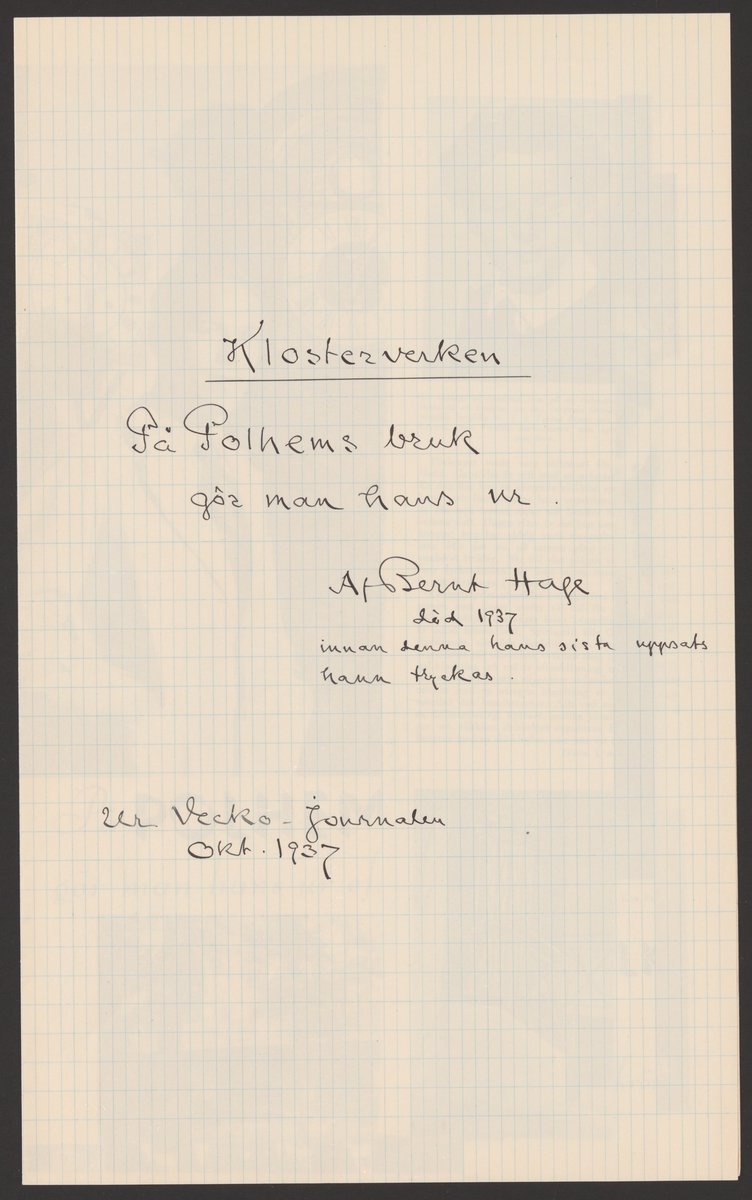 Klosterverken
På Polhems bruk
gör man hans ur.
Af Bernt Hage
död 1937
innan denna hans sista uppsats
hann tryckas.
Ur Vecko-Journalen
Okt. 1937